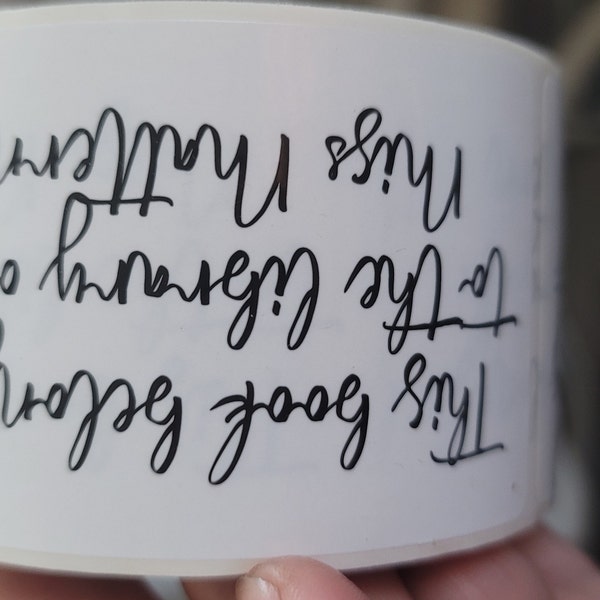 This book belon
to the library o
Miss Mattern